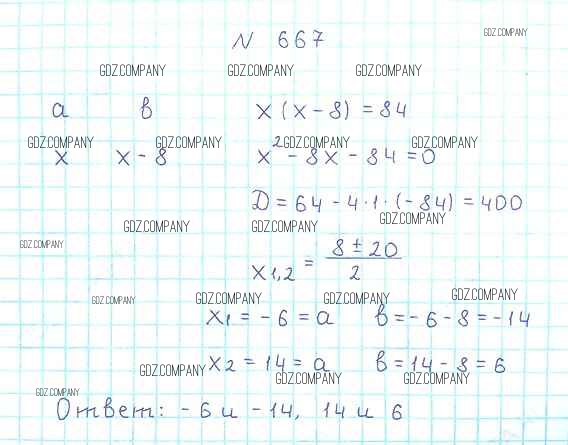 N 667
GDZ.COMPANY
GDZ.COMPANY GDZ.COMPANY GDZ.COMPANY
a в x (x - 8) = 84
GDZ.COMPANY GDZ.COMPANY GDZ.COMPANY GDZ.COMPANY
x x - 8 x² - 8x - 84 = 0
D = 64 - 4·1·(-84) = 400
GDZ.COMPANY GDZ.COMPANY GDZ.COMPANY
GDZ.COMPANY
x1,2 = (8 ± 20)/2
GDZ.COMPANY GDZ.COMPANY GDZ.COMPANY GDZ.COMPANY
x1 = -6 = a в = -6 - 8 = -14
x2 = 14 = a в = 14 - 8 = 6
GDZ.COMPANY GDZ.COMPANY GDZ.COMPANY
GDZ.COMPANY
Ответ: -6 и -14, 14 и 6